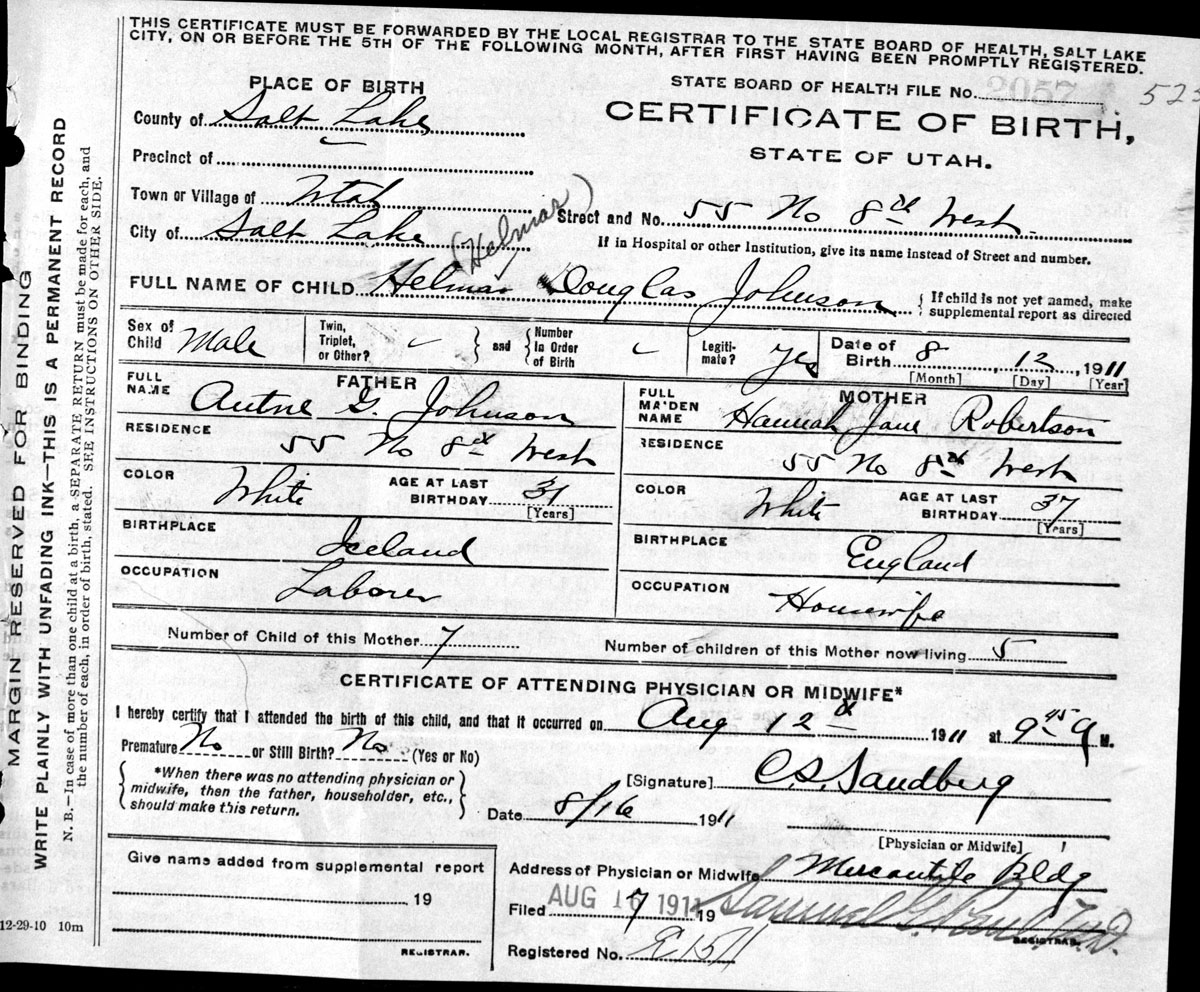 THIS CERTIFICATE MUST BE FORWARDED BY THE LOCAL REGISTRAR TO THE STATE BOARD OF HEALTH, SALT LAKE
CITY, ON OR BEFORE THE 5TH OF THE FOLLOWING MONTH, AFTER FIRST HAVING BEEN PROMPTLY REGISTERED.
MARGIN RESERVED FOR BINDING
WRITE PLAINLY WITH UNFADING INK—THIS IS A PERMANENT RECORD
N. B.—In case of more than one child at a birth, a SEPARATE RETURN must be made for each, and
the number of each, in order of birth, stated. SEE INSTRUCTIONS ON OTHER SIDE.
PLACE OF BIRTH
County of Salt Lake
Precinct of
Town or Village of Utah
City of Salt Lake
STATE BOARD OF HEALTH FILE No. 2057 523
CERTIFICATE OF BIRTH,
STATE OF UTAH.
Street and No. 55 No 8th West
If in Hospital or other Institution, give its name instead of Street and number.
(Helmar)
FULL NAME OF CHILD Helmar Douglas Johnson { If child is not yet named, make
supplemental report as directed
Sex of Child Male
Twin, Triplet, or Other? and Number In Order of Birth
Legitimate? Yes
Date of Birth 8, 12, 1911
[Month] [Day] [Year]
FATHER
FULL NAME G. Johnson
RESIDENCE 55 No 8th West
COLOR White AGE AT LAST BIRTHDAY 31 [Years]
BIRTHPLACE Iceland
OCCUPATION Laborer
MOTHER
FULL MAIDEN NAME Hannah Jane Robertson
RESIDENCE 55 No 8th West
COLOR White AGE AT LAST BIRTHDAY 37 [Years]
BIRTHPLACE England
OCCUPATION Housewife
Number of Child of this Mother 7 Number of children of this Mother now living 5
CERTIFICATE OF ATTENDING PHYSICIAN OR MIDWIFE*
I hereby certify that I attended the birth of this child, and that it occurred on Aug 12th 1911 at 9 45 a M.
Premature No or Still Birth? No (Yes or No)
{ *When there was no attending physician or
midwife, then the father, householder, etc.,
should make this return. }
[Signature] C.S. Sandberg
Date 8/16 1911
[Physician or Midwife]
Give name added from supplemental report
19
REGISTRAR.
Address of Physician or Midwife Mercantile Bldg
Filed AUG 17 1911 19 Samuel G. Paul, M.D.
REGISTRAR.
Registered No. E1511
12-29-10 10m